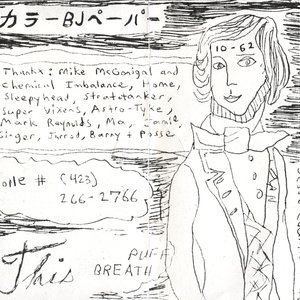 カラーBJペーパー
10-62
Thanx: Mike McGonigal and
Chemical Imbalance, Home,
Sleepyhead, Stratotanker,
Super Vixens, Astro-Tyke,
Mark Reynolds, Ma
Ginger, Jarrod, Barry + Posse
# (423)
266-2766
PUFF
BREATH
This